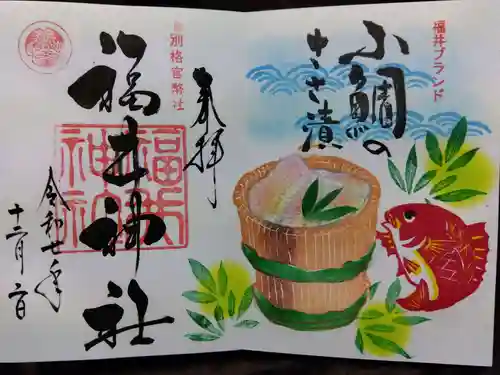 福井ブランド
小鯛の
ささ漬
奉拝
別格官幣社
福井神社
福井
神社
令和七年
十二月二日